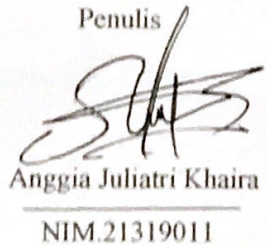 Penulis
Anggia Juliatri Khaira
NIM.21319011